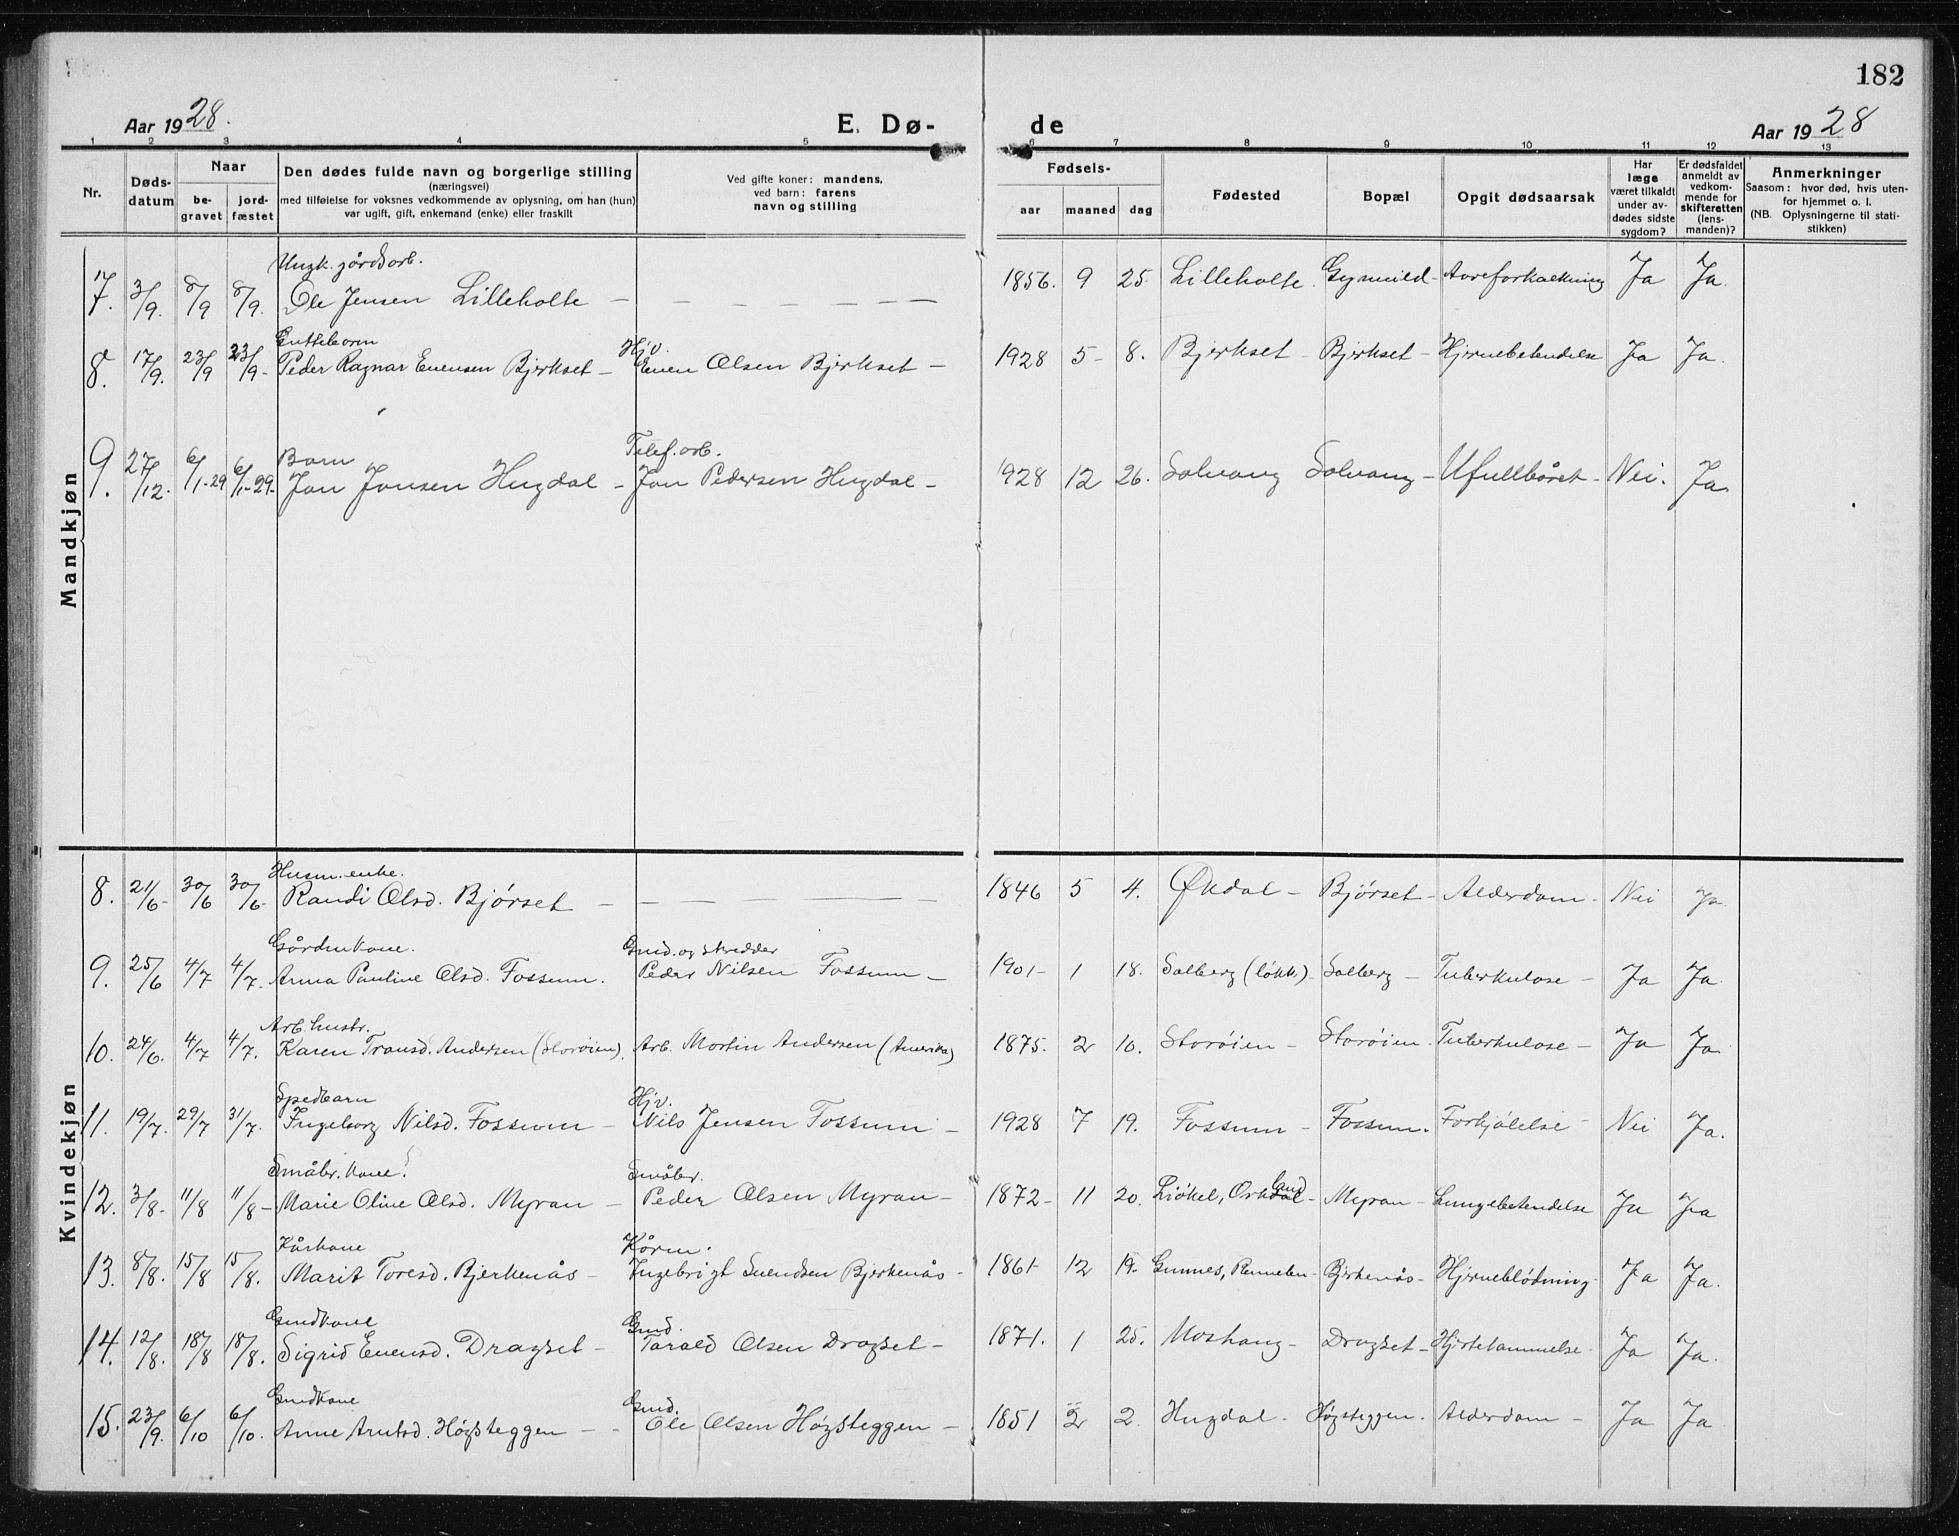 182
Aar 1928.
E. Dø-
de
Aar 1928
1 2 3 4 5 6 7 8 9 10 11 12 13
Nr.
Døds-
datum
Naar
be-
gravet
jord-
fæstet
Den dødes fulde navn og borgerlige stilling
(næringsvei)
med tilføielse for voksnes vedkommende av oplysning, om han (hun)
var ugift, gift, enkemand (enke) eller fraskilt
Ved gifte koner: mandens,
ved barn: farens
navn og stilling
Fødsels-
aar maaned dag
Fødested
Bopæl
Opgit dødsaarsak
Har
læge
været tilkaldt
under av-
dødes sidste
sygdom?
Er dødsfaldet
anmeldt av
vedkom-
mende for
skifteretten
(lens-
manden)?
Anmerkninger
Saasom: hvor død, hvis uten-
for hjemmet o. l.
(NB. Oplysningerne til stati-
stikken)
Mandkjøn
Ungk. gårdsarb.
7. 3/9. 8/9 8/9. Ole Jensen Lilleholte – – – – – – – 1856. 9 25. Lilleholte. Aareforkalkning Ja Ja.
Guttebarn Hjv.
8. 17/9. 23/9 23/9- Peder Ragnar Evensen Bjerkset – Even Olsen Bjerkset – 1928 5- 8. Bjerkset – Bjerkset – Hjernebetendelse Ja Ja.
Barn Telef. arb.
9. 27/12. 6/1-29 6/1-29- Jon Jonsen Hugdal – Jon Pedersen Hugdal – 1928 12 26. Solvang Solvang – Ufullbåret – Nei. Ja.
Kvindekjøn
Husm. enke.
8. 21/6- 30/6 30/6- Randi Olsd. Bjørset – – – – – – 1846 5 4. Økdal – Bjørset – Alderdom – Nei Ja.
Gårdmkone. Gmd. og skredder
9. 25/6 4/7 4/7. Anna Pauline Olsd. Fossum. Peder Nilsen Fossum – 1901- 1 18. Solberg (løkk.) – Solberg – Tuberkulose – Ja Ja.
Arb. hustr.
10. 24/6. 4/7 4/7. Karen Transd. Andersen (Storøien). Arb. Martin Andersen (Amerika) 1875. 2 10. Storøien – Storøien – Tuberkulose – Ja Ja.
Spedbarn Hjv.
11. 19/7. 29/7 31/7. Ingeborg Nilsd. Fossum – Nils Jensen Fossum – 1928 7 19. Fossum – Fossum. Forkjølelse – Nei Ja.
Småbr. kone. Småbr.
12. 3/8- 11/8 11/8- Marie Oline Olsd. Myran – Peder Olsen Myran – 1872- 11 20. Orkdal – Myran – Lungebetendelse Ja Ja
Kårkone Kårm.
13. 8/8. 15/8 15/8. Marit Toresd. Bjerkenås – Ingebrigt Svendsen Bjerkenås – 1861- 12 19. Gunnes, Rennebu – Bjerkenås – Hjerneblødning. Ja Ja.
Gmdkone Gmd.
14. 12/8. 18/8 18/8. Sigrid Evensd. Dragset – Tarald Olsen Dragset – 1871. 1 25. Moshaug – Dragset – Hjertelammelse. Ja Ja.
Gmdkone Gmd.
15. 23/9. 6/10 6/10. Anne Arntsd. Høgsteggen – – Ole Olsen Høgsteggen – 1851 2 2. Hugdal – Høgsteggen. Alderdom – Ja Ja